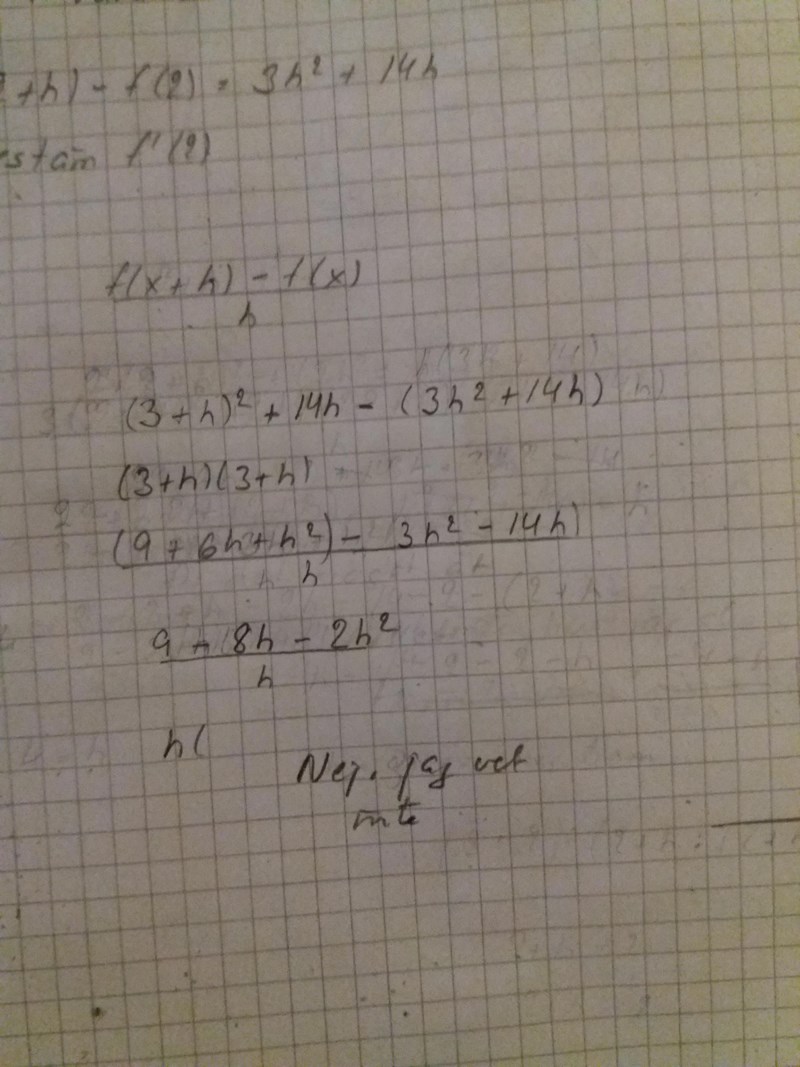 2+h) - f(2) = 3h² + 14h
stäm f'(2)
f(x+h) - f(x)
h
(3+h)² + 14h - (3h² + 14h)
(3+h)(3+h)
(9 + 6h + h²) - 3h² - 14h)
h
9 - 8h - 2h²
h
h(
Nej. jag vet
inte